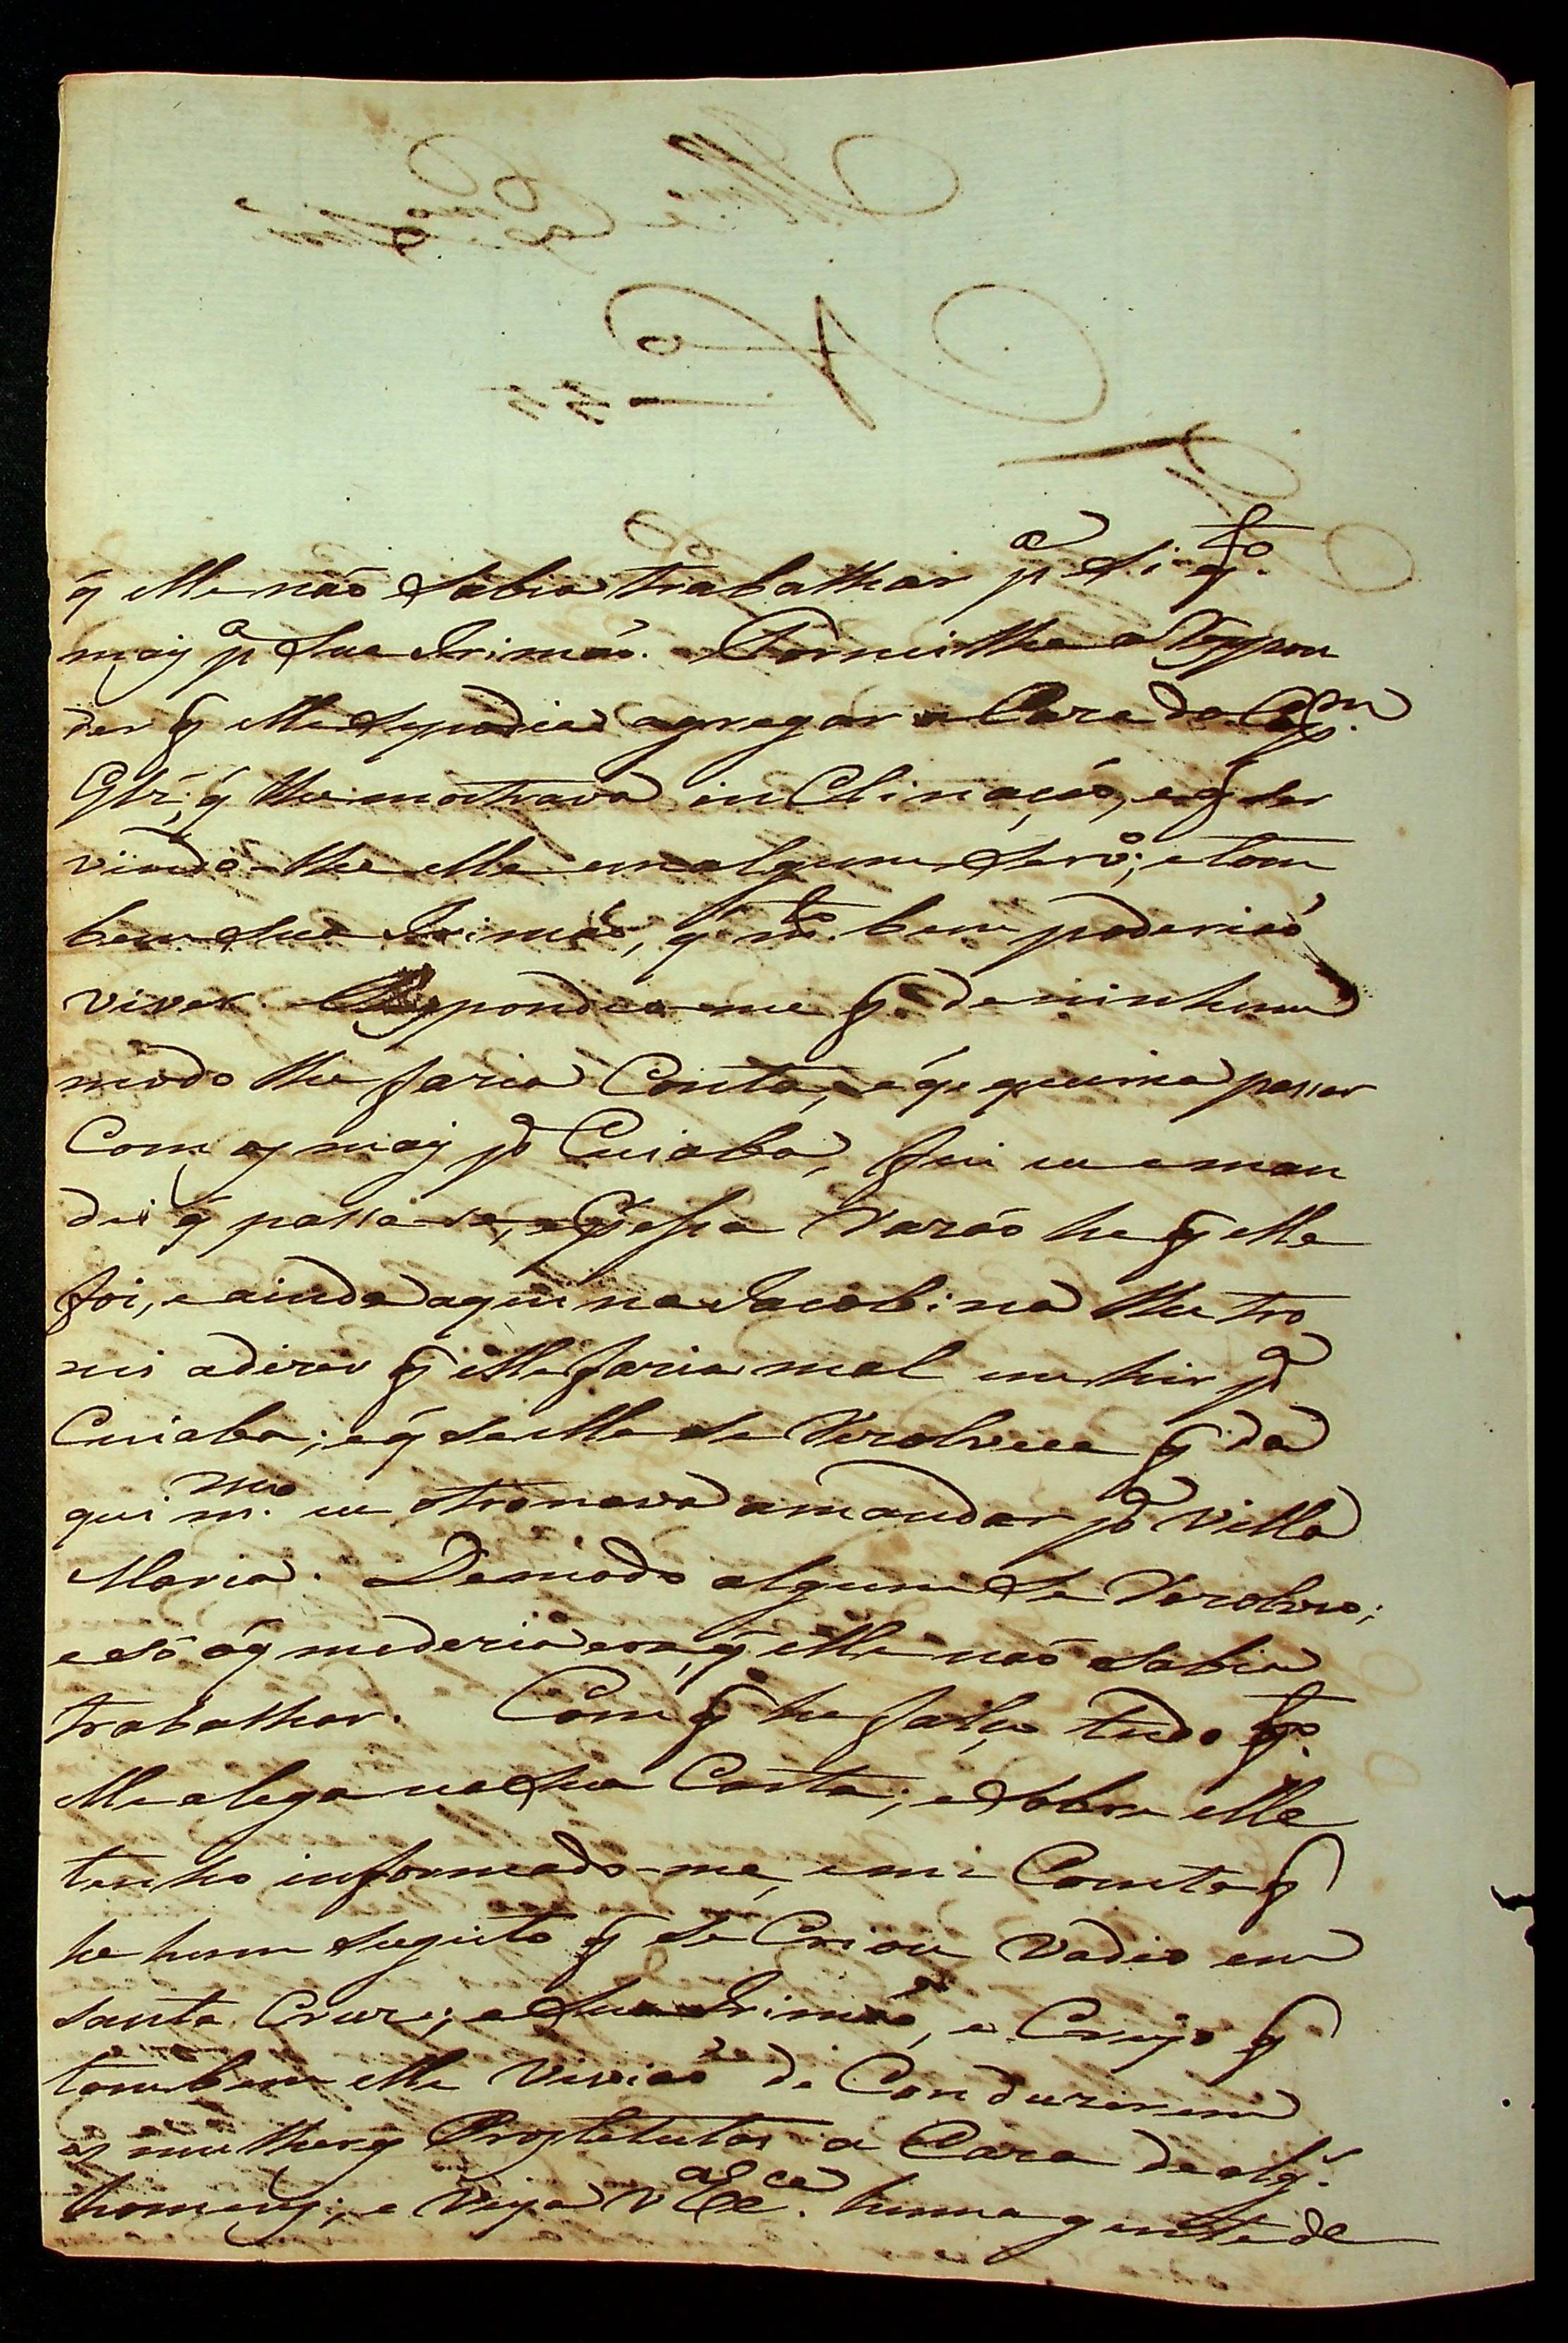 q̃ elle não sabia trabalhar p.ª si q.to
mais p.ª sua Irimão. Tornei lhe a Respon
der q̃ elle se podia agregar a Caza do Cap.m
Glz', q̃ lhe mostrava inClinação, e q̃ ser
vindo-lhe elle em algum serv.º; e tam
bem sua Irimão, q̃ m.to bem poderiaõ
viver. Respondeo-me q̃ de ninhum
modo lhe faria Conta, e q̃ queria passar
Com os mais p.ª Cuiaba, fui eu e man
dei q̃ passa-se, e q̃ essa Razão he q̃ elle
foi, e ainda aqui na Jacobina lhe tro
nei a dizer q̃ elle faria mal em hir p.ª
Cuiaba; e q̃ se elle se Rezolvece q̃ da
qui m.mo eu tronava a mandar p.ª Villa
Maria. De modo algum se Rezolveo;
e só o q̃ me dezia era, q̃ elle não sabia
trabalhar. Com q̃ he falço tudo q.to
elle alega na sua Carta; e sobre elle
tenho informado-me, e mi Consta q̃
he hum sugeito q̃ se Criou vadio em
Santa Cruz; e sua Irimão, e Crejo q̃
tambem elle viviaõ de Conduzirem
as mulheres Prostetutas a Caza de alg.s
homens; e veja V Ex.ca huma gente de